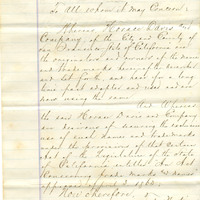 To All whom it may Concern
Whereas Horace Davis and
Company of the City and County of
San Francisco State of California are
the originators and owners of the names
and trade marks herein
set forth, and have for a long
time past adopted and used and are
now using the same
And Whereas
the said Horace Davis and Company
are desirous of securing the exclusive
use of said names and trade marks
under the provisions of that certain
act of the Legislature of
of California entitled An Act
Concerning trade marks and names
approved April 1863.
Now therefore,